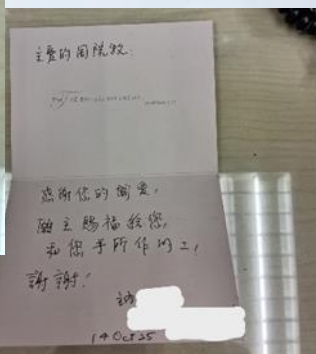 主愛的周院牧:
感謝你的關愛,
願主賜福給您,
和您手所作的工,
謝謝!
主
14 Oct 25